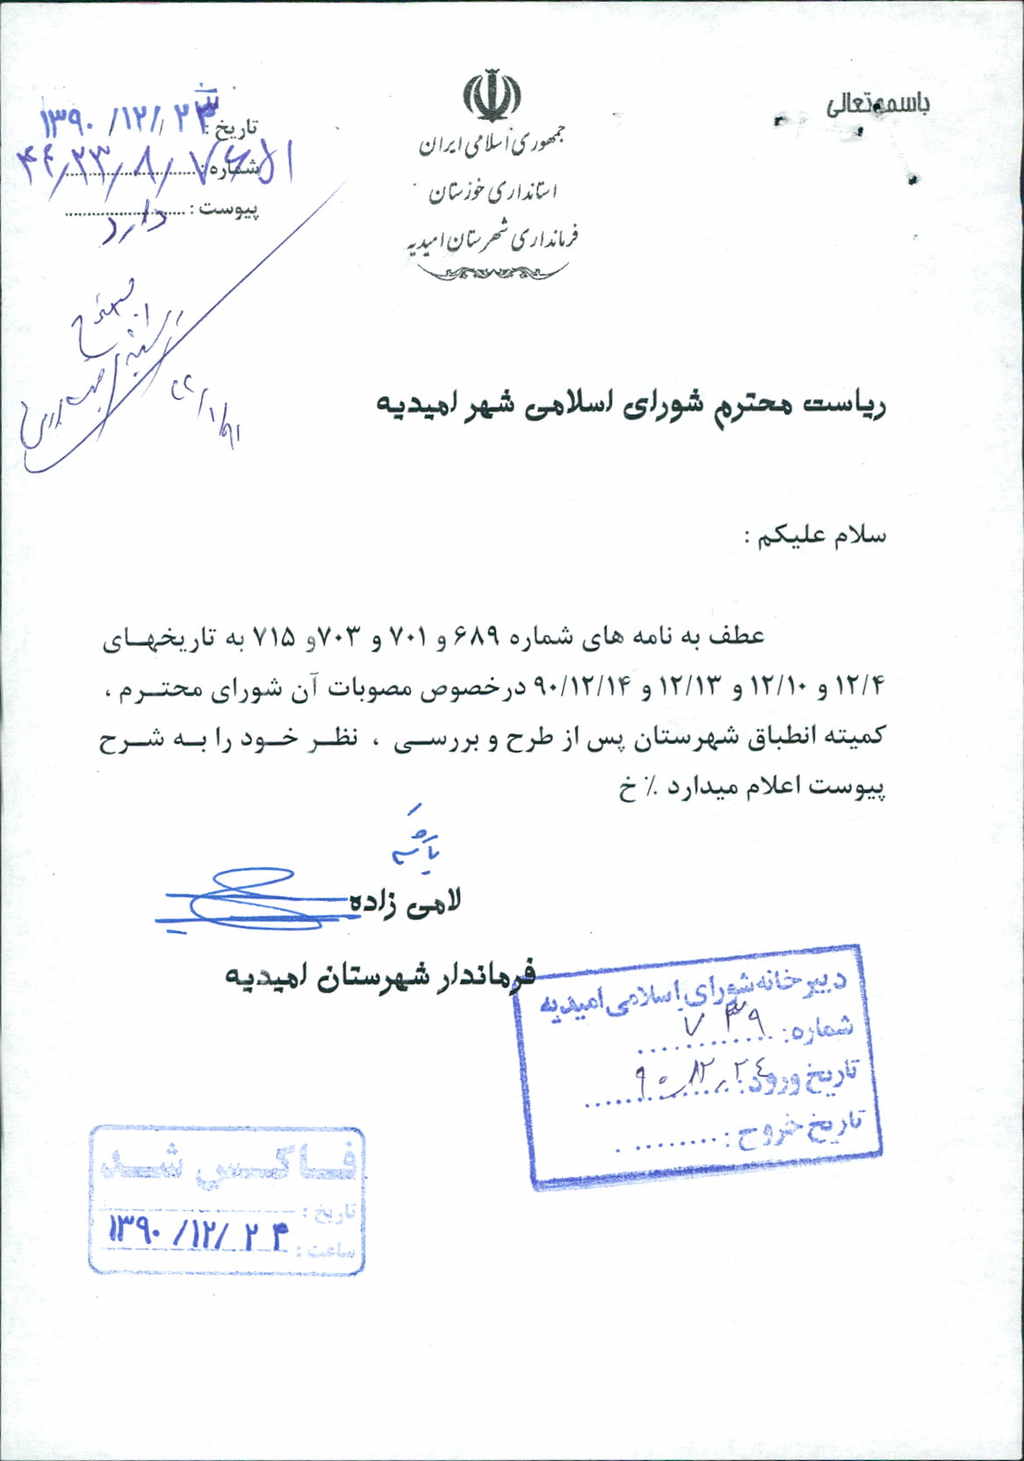 باسمه تعالی
جمهوری اسلامی ایران
استانداری خوزستان
فرمانداری شهرستان امیدیه
تاریخ : ۱۳۹۰/۱۲/۲۳
شماره :
پیوست : دارد
۹۱/۱/۲۲
ریاست محترم شورای اسلامی شهر امیدیه
سلام علیکم :
عطف به نامه های شماره ۶۸۹ و ۷۰۱ و ۷۰۳و ۷۱۵ به تاریخهای
۱۲/۴ و ۱۲/۱۰ و ۱۲/۱۳ و ۹۰/۱۲/۱۴ درخصوص مصوبات آن شورای محترم ،
کمیته انطباق شهرستان پس از طرح و بررسی ، نظر خود را به شرح
پیوست اعلام میدارد ٪ خ
لامی زاده
فرماندار شهرستان امیدیه
دبیرخانه شورای اسلامی امیدیه
شماره: ۷۳۹
تاریخ ورود: ۹۰-۱۲-۲۴
تاریخ خروج :
فاکس شد
تاریخ : ۱۳۹۰/۱۲/۲۴
ساعت :